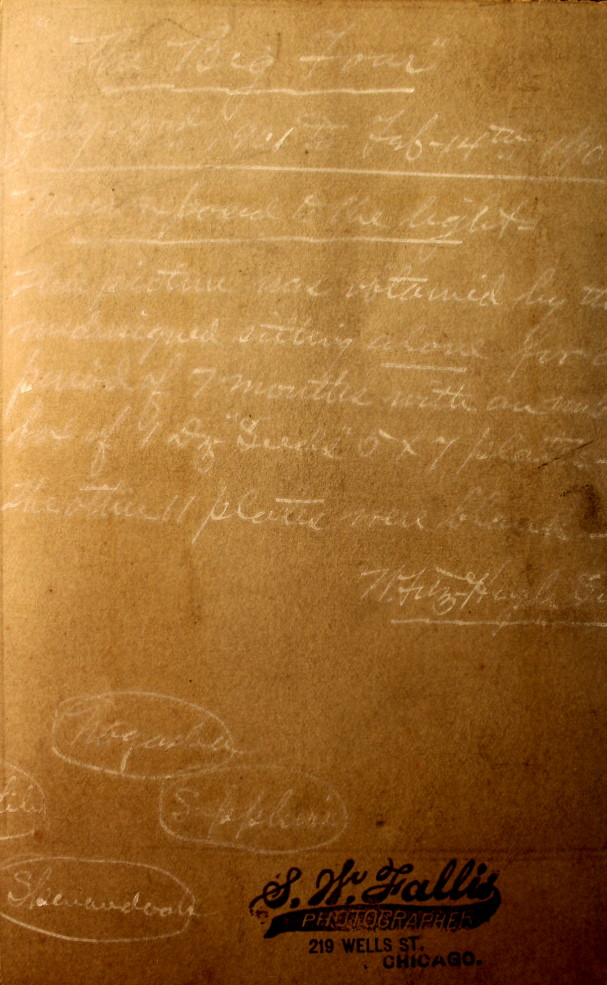 The "Big Four"
1901 to Feb-14th, 190
Never exposed to the light-
This picture was obtained by th
undersigned sitting alone for a
period of 7 months with an
box of 1 Dz "Seeds" 5 x 7 plates
the other 11 plates were blank -
W. Fitz-Hugh
Sapphire
Shenandoah
S. W. Fallis
PHOTOGRAPHER
219 WELLS ST.
CHICAGO.